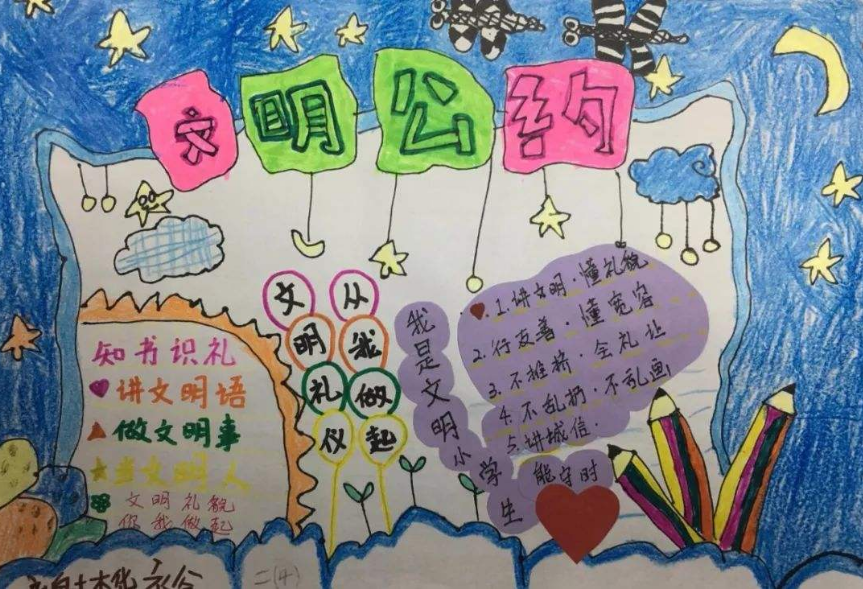 文明公约
知书识礼
讲文明语
做文明事
当文明人
文明礼貌
你我做起
文明礼仪
从我做起
我是文明小学生
1.讲文明·懂礼貌
2.行友善·懂宽容
3.不推挤·会礼让
4.不乱扔·不乱画
5.讲城信·能守时
二(4)